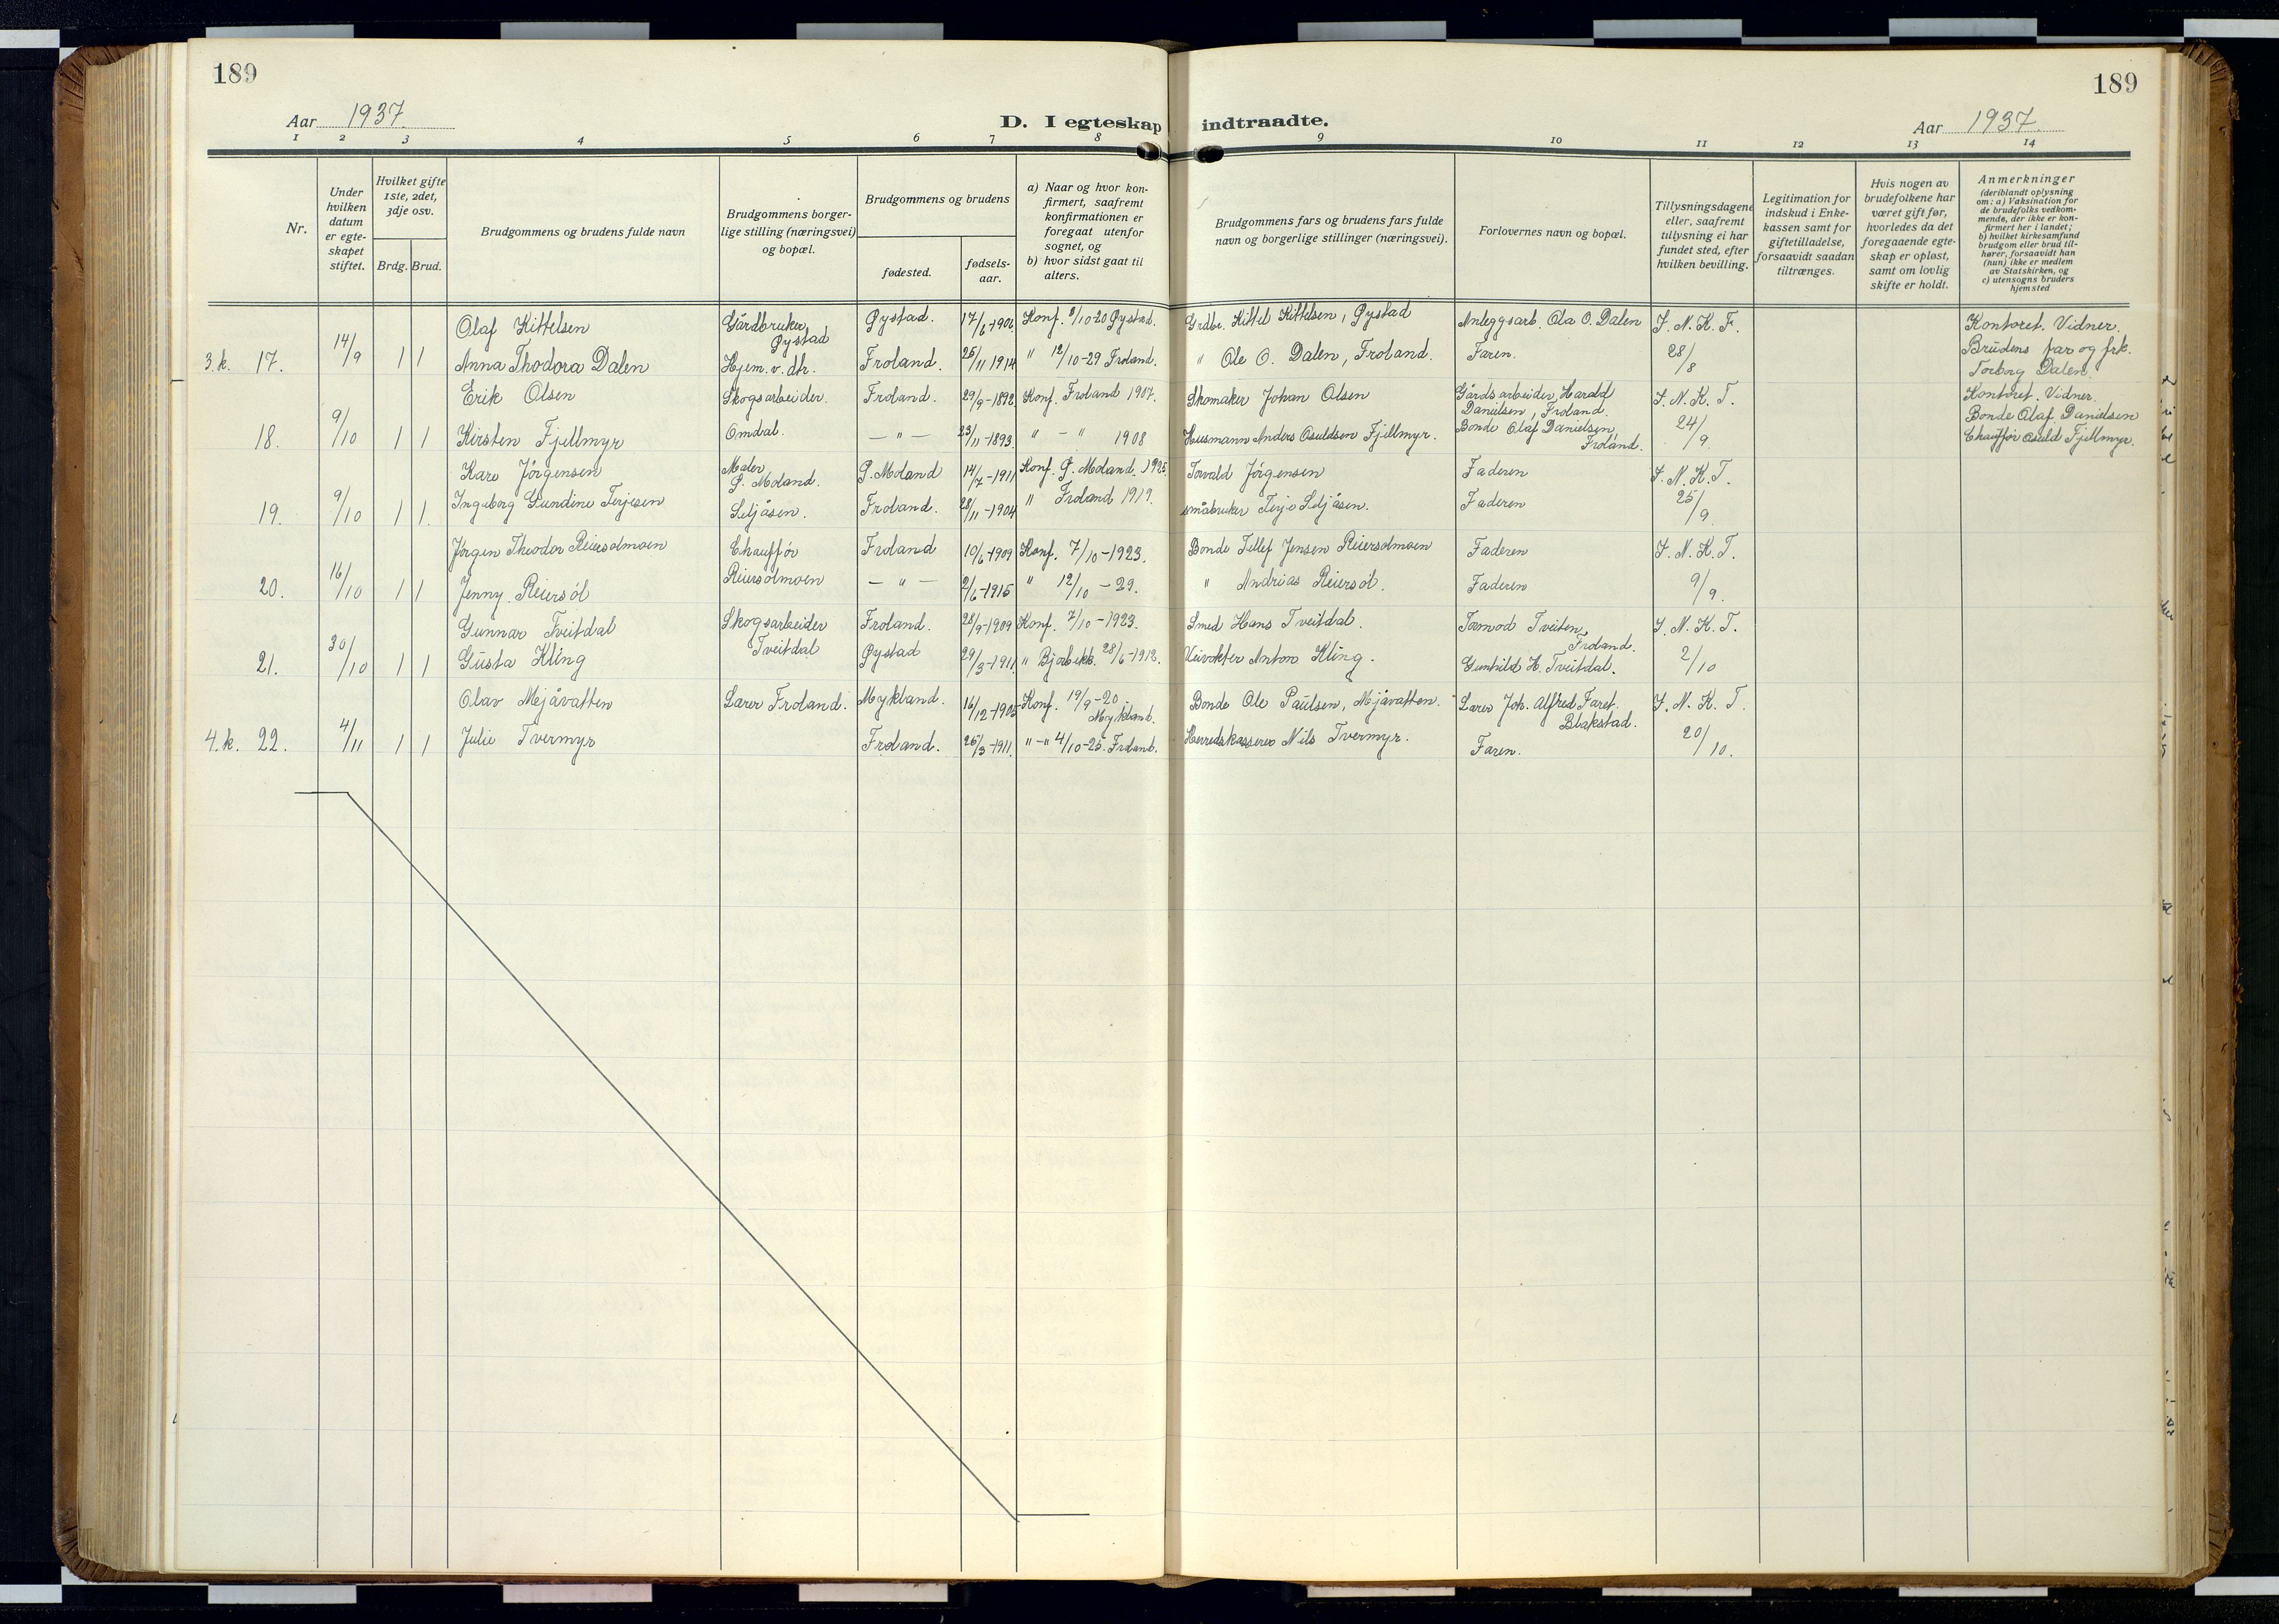 189
189
Aar 1937.
D. I egteskap indtraadte.
Aar 1937.
1 2 3 4 5 6 7 8 9 10 11 12 13 14
Nr.
Under hvilken datum er egteskapet stiftet.
Hvilket gifte 1ste, 2det, 3dje osv.
Brdg. Brud.
Brudgommens og brudens fulde navn
Brudgommens borgerlige stilling (næringsvei) og bopæl.
Brudgommens og brudens
fødested.
fødselsaar.
a) Naar og hvor konfirmert, saafremt konfirmationen er foregaat utenfor sognet, og
b) hvor sidst gaat til alters.
Brudgommens fars og brudens fars fulde navn og borgerlige stillinger (næringsvei).
Forlovernes navn og bopæl.
Tillysningsdagene eller, saafremt tillysning ei har fundet sted, efter hvilken bevilling.
Legitimation for indskud i Enkekassen samt for giftetilladelse, forsaavidt saadan tiltrænges.
Hvis nogen av brudefolkene har været gift før, hvorledes da det foregaaende egteskap er opløst, samt om lovlig skifte er holdt.
Anmerkninger
(deriblandt oplysning om: a) Vaksination for de brudefolks vedkommende, der ikke er konfirmert her i landet; b) hvilket kirkesamfund brudgom eller brud tilhører, forsaavidt han (hun) ikke er medlem av Statskirken, og c) utensogns bruders hjemsted
Olaf Kittelsen Gårdbruker, Øystad Øystad. 17/6-1906 Konf. 3/10-20 Øystad. Grdbr. Kittel Kittelsen, Øystad Anleggsarb. Ola O. Dalen S. N. K. F. Kontoret. Vidner.
3. k. 17. 14/9 1 1 Anna Thodora Dalen Hjem. v. dtr. Froland. 25/11 1914 " 12/10-29 Froland. " Ole O. Dalen, Froland. Faren. 28/8 Brudens far og frk. Torborg Dalen.
Erik Olsen Skogsarbeider. Froland. 29/9-1892 Konf. Froland 1907. Skomaker Johan Olsen Gårdsarbeider Harald Danielsen, Froland. S. N. K. T. Kontoret. Vidner.
18. 9/10 1 1 Kirsten Fjellmyr Omdal. — " — 23/11-1893 " - " 1908 Husmann Anders Osuldsen Fjellmyr. Bonde Olaf Danielsen, Froland. 24/9. Bonde Olaf Danielsen Chauffør Osuld Fjellmyr.
Kåre Jörgensen Maler Ø. Moland. Ø. Moland 14/7-1911 Konf. Ø. Moland. 1925 Torvald Jörgensen Faderen S. N. K. T.
19. 9/10 1 1. Ingeborg Gundine Terjesen Seljåsen. Froland. 28/11-1904 " Froland 1919. småbruker Terje Seljåsen. Faderen 25/9.
Jörgen Theodor Reiersolmoen Chauffør Froland 10/6-1909 Konf. 7/10-1923. Bonde Tellef Jensen Reiersolmoen Faderen S. N. K. T.
20. 16/10 1 1 Jenny Reiersöl Reiersolmoen — " — 2/6-1915 " 12/10-29. " Andrias Reiersöl. Faderen 9/9.
Gunnar Tveitdal Skogsarbeider Froland. 28/9-1909 Konf. 7/10-1923. Smed Hans Tveitdal. Tormod Tveiten, Froland. S. N. K. T.
21. 30/10 1 1 Gusta Kling Tveitdal Øystad 29/3-1911 " 28/6-1913. Veivokter Anton Kling. Gunhild H. Tveitdal. 2/10
Olav Mjåvatten Lærer Froland. Mykland. 16/12-1905 Konf. 19/9-20 Mykland. Bonde Ole Paulsen, Mjåvatten. Lærer Joh. Alfred Faret, Blakstad. S. N. K. T.
4. k. 22. 4/11 1 1 Julie Tvermyr Froland. 26/3-1911. " - " 4/10-25. Froland. Herredskasserer Nils Tvermyr. Faren. 20/10.